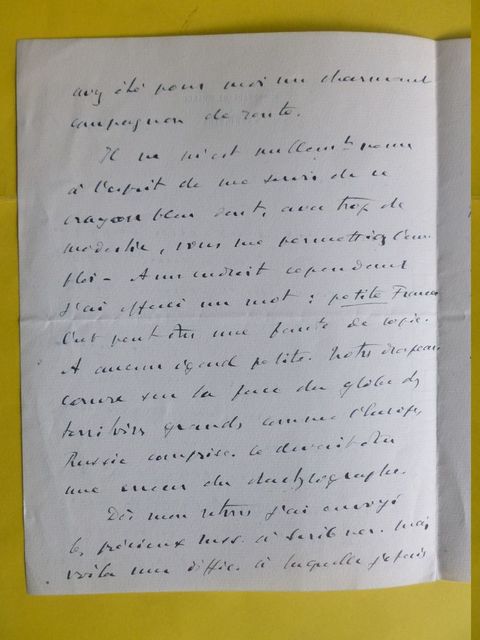 avez été pour moi un charmant
compagnon de route.
Il ne m'est nullemt venu
à l'esprit de me servir de ce
crayon bleu dont, avec trop de
modestie, vous me permettiez l'em-
ploi - A un endroit cependant
j'ai effacé un mot : petite France
C'est peut être une faute de copie.
A aucun égard petite. Notre drapeau
couvre sur la face du globe des
territoires grands comme l'Europe,
Russie comprise. Ce devait être
une erreur du dactylographe.
Dès mon retour j'ai envoyé
le précieux mss. à Scribner. Mais
voilà une diffic. à laquelle j'étais